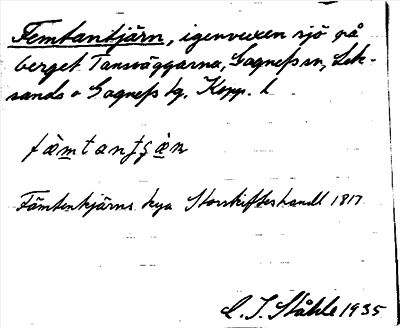 Femtantjärn, igenvuxen sjö på
berget Tansväggarna, Gagnefs sn, Lek-
sands o Gagnefs tg, Kopp. l
fæmtantʂæn
Fämtenkjärns hya Storskifteshandl 1817
C. I. Ståhle 1935